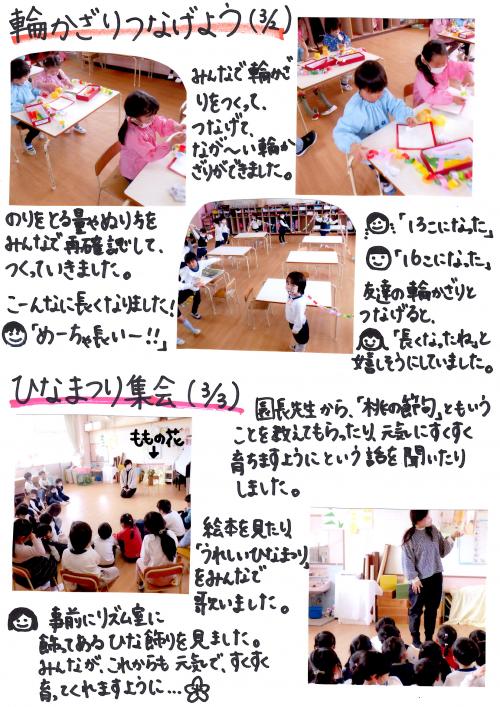 輪かざりつなげよう(3/2)
みんなで輪かざ
りをつくって、
つなげて、
なが〜い輪か
ざりができました。
のりをとる量やぬり方を
みんなで再確認して、
つくっていきました。
こーんなに長くなりました!
「めーちゃ長いー!!」
:「13こになった」
「16こになった」
友達の輪かざりと
つなげると、
「長くなったね」と
嬉しそうにしていました。
ひなまつり集会(3/3)
園長先生から、「桃の節句」ともいう
ことを教えてもらったり、元気にすくすく
育ちますようにという話を聞いたり
しました。
ももの花
↓
絵本を見たり、
「うれしいひなまつり」
をみんなで
歌いました。
事前にリズム室に
飾ってあるひな飾りを見ました。
みんなが、これからも元気で、すくすく
育ってくれますように...